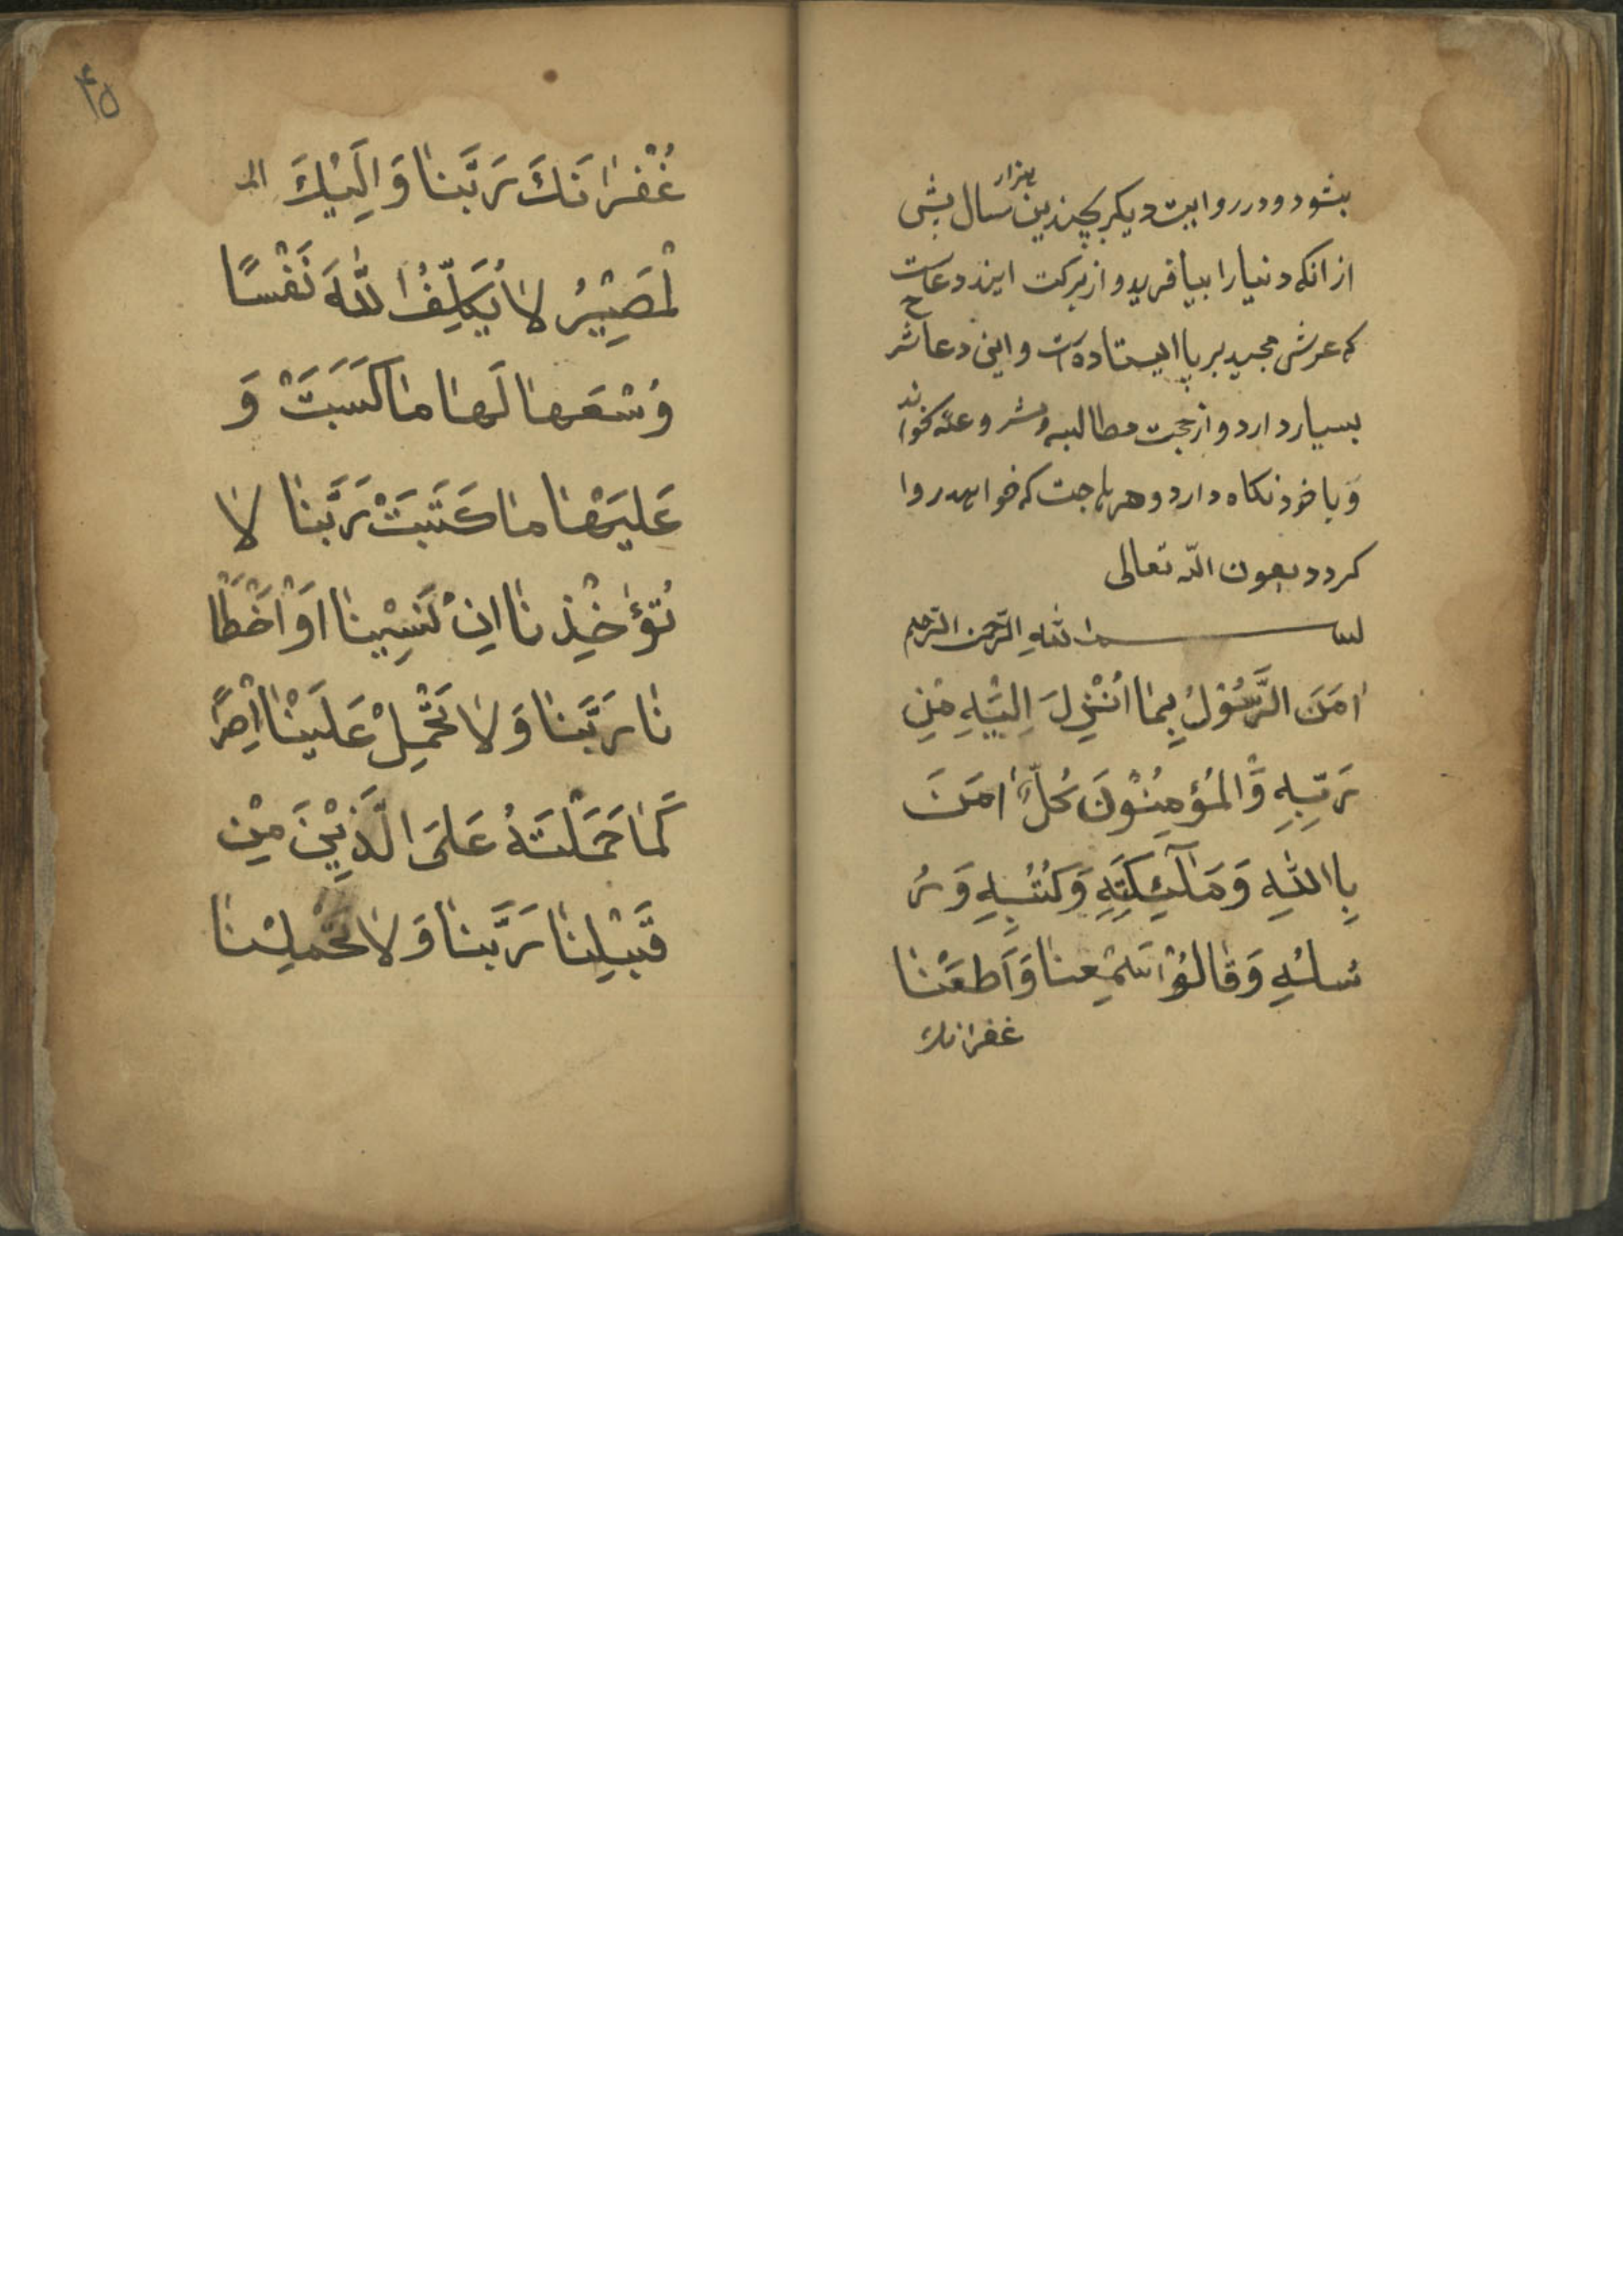 بشود و در روایت دیکر بچندین هزار سال پیش
از انکه دنیا را بیافرید و از برکت این دعاست
که عرش مجید بر پا ایستاده است و این دعا شرح
بسیار دارد و از جهت مطالبه و شر و عله بخواند
وَ با خود نکاه دارد و هر حاجت که خواهد روا
کردد بعون الله تعالی
بسم الله الرّحمن الرّحیم
اٰمَنَ الرَّسُوْلُ بِمٰا اُنْزِلَ اِلَیْهِ مِنْ
رَبِّهِ وَالْمُؤمِنُوْنَ کُلٌّ اٰمَنَ
بِاللّٰهِ وَمَلآئِکَتِهِ وَکُتُبِهِ وَرُ
سُلِهِ وَقٰالُوْا سَمِعْنٰا وَاَطَعْنٰا
غفرانک
۴۵
غُفْرٰانَكَ رَبَّنٰا وَاِلَیْكَ الـ
لْمَصِیْرُ لاٰ یُکَلِّفُ اللّٰهَ نَفْسًا
وُسْعَهٰا لَهٰا مٰا کَسَبَتْ وَ
عَلَیْهٰا مٰا کَتَبَتْ رَبَّنٰا لاٰ
تُؤٰخِذْنٰا اِنْ نَسِیْنٰا اَوْ اَخْطَأْ
نٰا رَبَّنٰا وَلاٰ تَحْمِلْ عَلَیْنٰا اِصْرًا
کَمٰا حَمَلْتَهُ عَلَی الَّذِیْنَ مِنْ
قَبْلِنٰا رَبَّنٰا وَلاٰ تُحَمِّلْنٰا